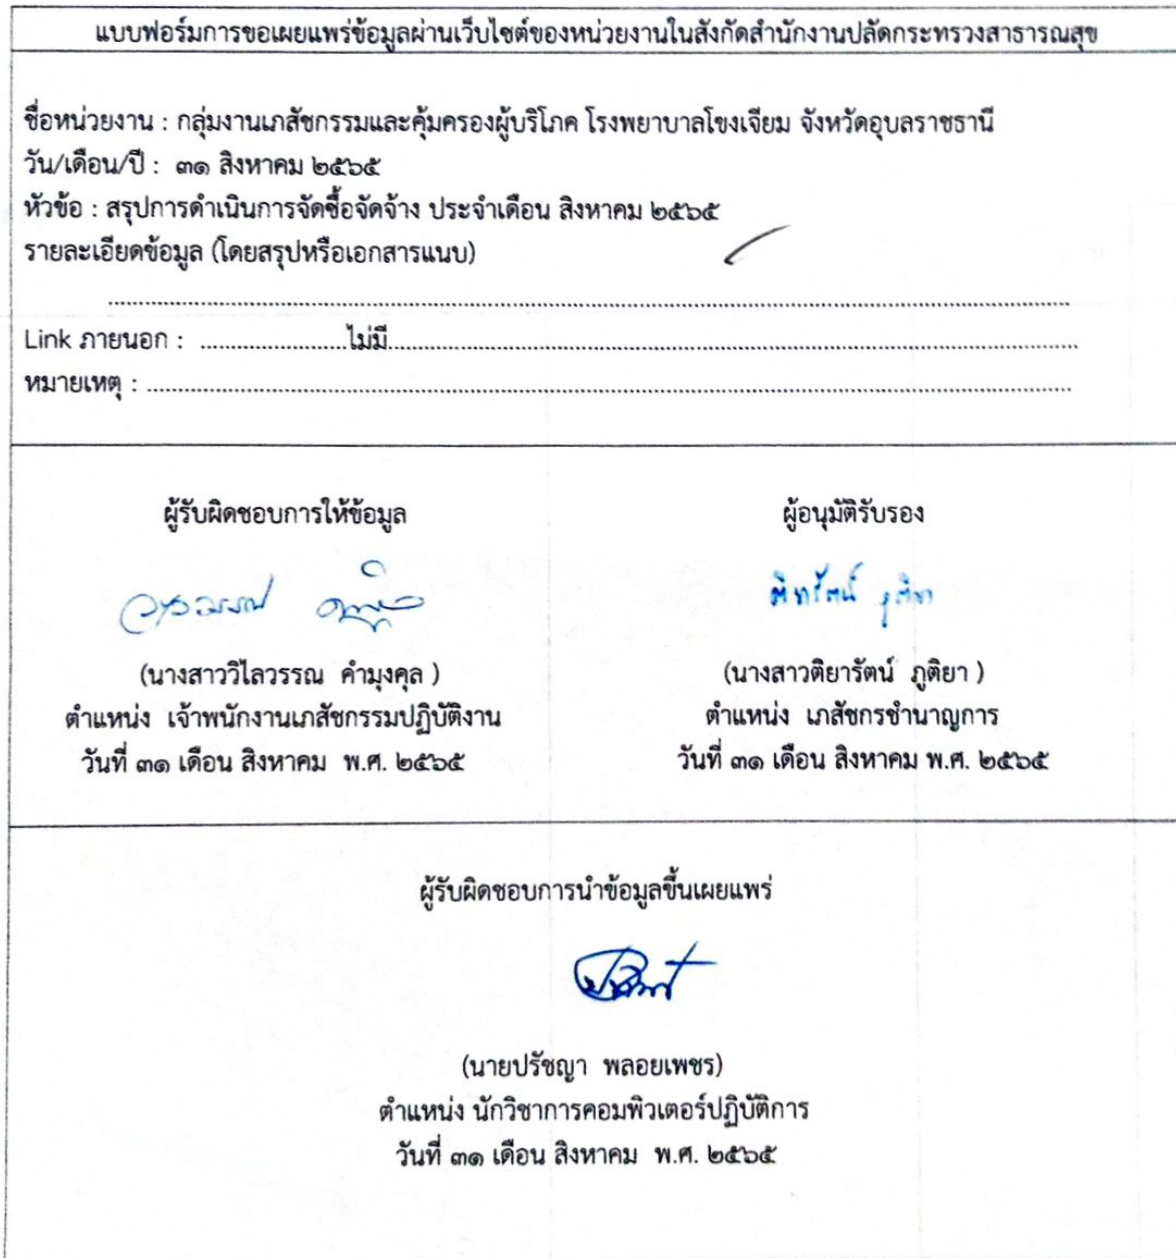 แบบฟอร์มการขอเผยแพร่ข้อมูลผ่านเว็บไซต์ของหน่วยงานในสังกัดสำนักงานปลัดกระทรวงสาธารณสุข
ชื่อหน่วยงาน : กลุ่มงานเภสัชกรรมและคุ้มครองผู้บริโภค โรงพยาบาลโขงเจียม จังหวัดอุบลราชธานี
วัน/เดือน/ปี : ๓๑ สิงหาคม ๒๕๖๕
หัวข้อ : สรุปการดำเนินการจัดซื้อจัดจ้าง ประจำเดือน สิงหาคม ๒๕๖๕
รายละเอียดข้อมูล (โดยสรุปหรือเอกสารแนบ)
................................................................................
Link ภายนอก : ........................ไม่มี................................................................................
หมายเหตุ : ................................................................................
ผู้รับผิดชอบการให้ข้อมูล
(นางสาววิไลวรรณ คำมุงคุล )
ตำแหน่ง เจ้าพนักงานเภสัชกรรมปฏิบัติงาน
วันที่ ๓๑ เดือน สิงหาคม พ.ศ. ๒๕๖๕
ผู้อนุมัติรับรอง
ติยารัตน์ ภูติยา
(นางสาวติยารัตน์ ภูติยา )
ตำแหน่ง เภสัชกรชำนาญการ
วันที่ ๓๑ เดือน สิงหาคม พ.ศ. ๒๕๖๕
ผู้รับผิดชอบการนำข้อมูลขึ้นเผยแพร่
(นายปรัชญา พลอยเพชร)
ตำแหน่ง นักวิชาการคอมพิวเตอร์ปฏิบัติการ
วันที่ ๓๑ เดือน สิงหาคม พ.ศ. ๒๕๖๕